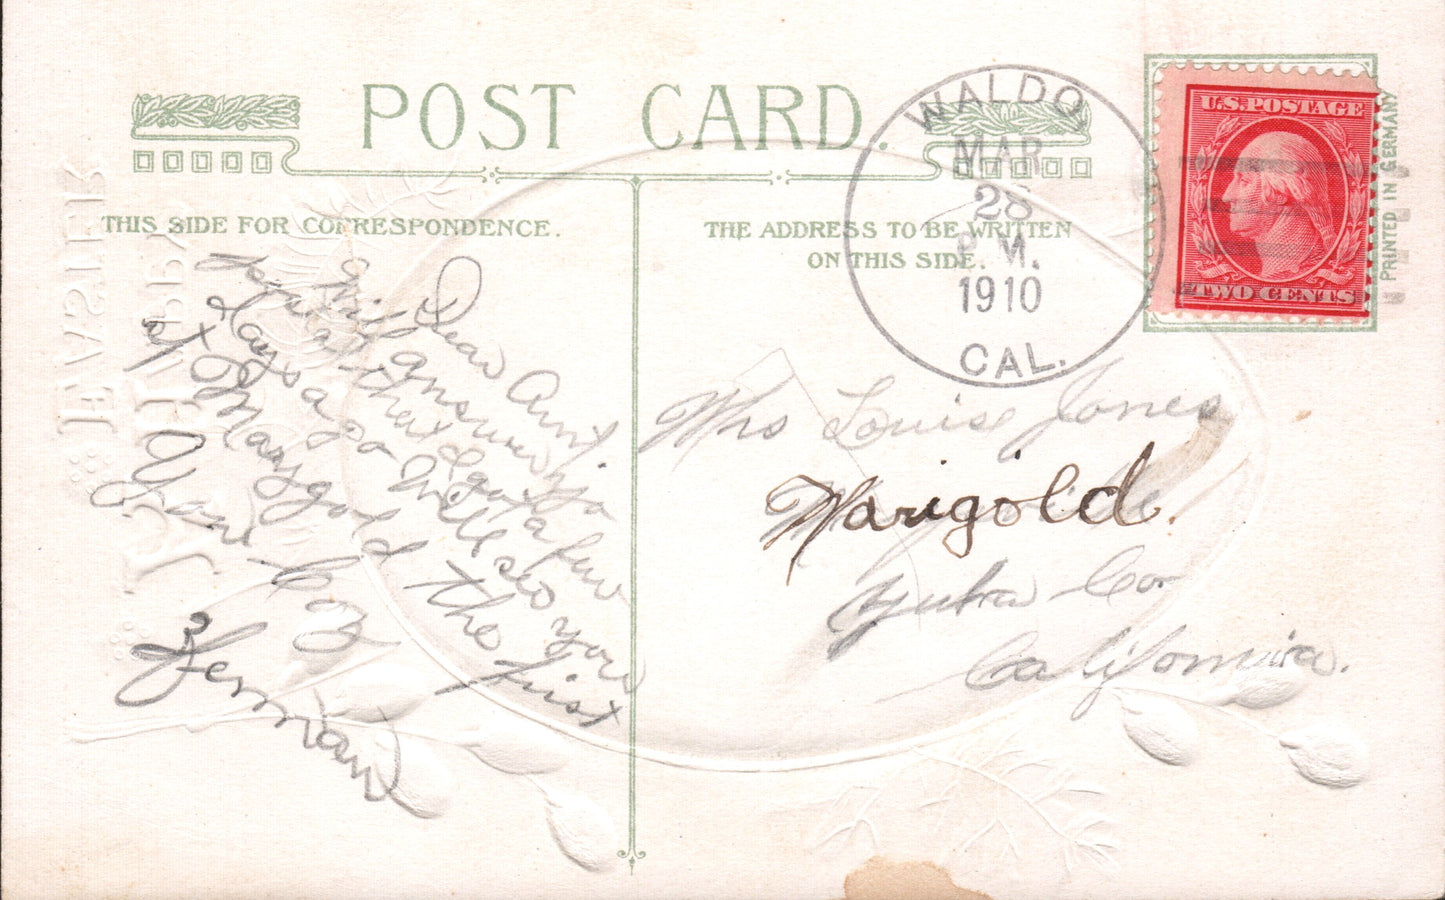 POST CARD.
THIS SIDE FOR CORRESPONDENCE.
THE ADDRESS TO BE WRITTEN
ON THIS SIDE.
WALDO
MAR
28
P.M.
1910
CAL.
U.S. POSTAGE
TWO CENTS
PRINTED IN GERMANY
Dear Aunt.
Will answer
your that I got a few
days ago Will see you
at Marygold the first
Your
Herman
Mrs Louise Jones
Marigold.
Yuba Co.
California.